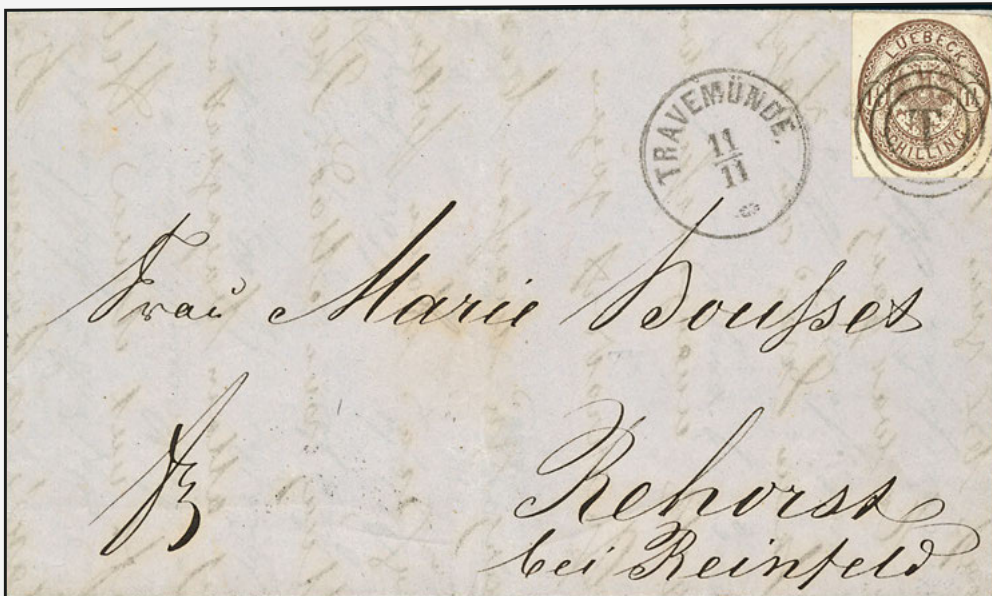 LUEBECK
1¼ 1¼
SCHILLING
T
TRAVEMÜNDE.
11
11
Frau Marie Housset
Rehorst
bei Reinfeld